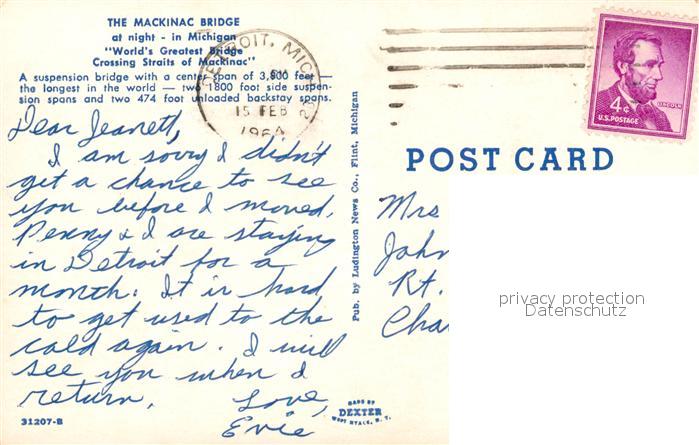 THE MACKINAC BRIDGE
at night - in Michigan
"World's Greatest Bridge
Crossing Straits of Mackinac"
A suspension bridge with a center span of 3,800 feet —
the longest in the world — two 1800 foot side suspen-
sion spans and two 474 foot unloaded backstay spans.
Dear Jeanett,
I am sorry I didn't
get a chance to see
you before I moved.
Penny & I are staying
in Detroit for a
month. It is hard
to get used to the
cold again. I will
see you when I
return.
Love,
Evie
31207-B
Pub. by Ludington News Co., Flint, Michigan
MADE BY
DEXTER
WEST NYACK, N. Y.
DETROIT, MICH
15 FEB
1964
4¢
LINCOLN
U.S. POSTAGE
POST CARD
Mrs
John
Rt.
Cha
privacy protection
Datenschutz